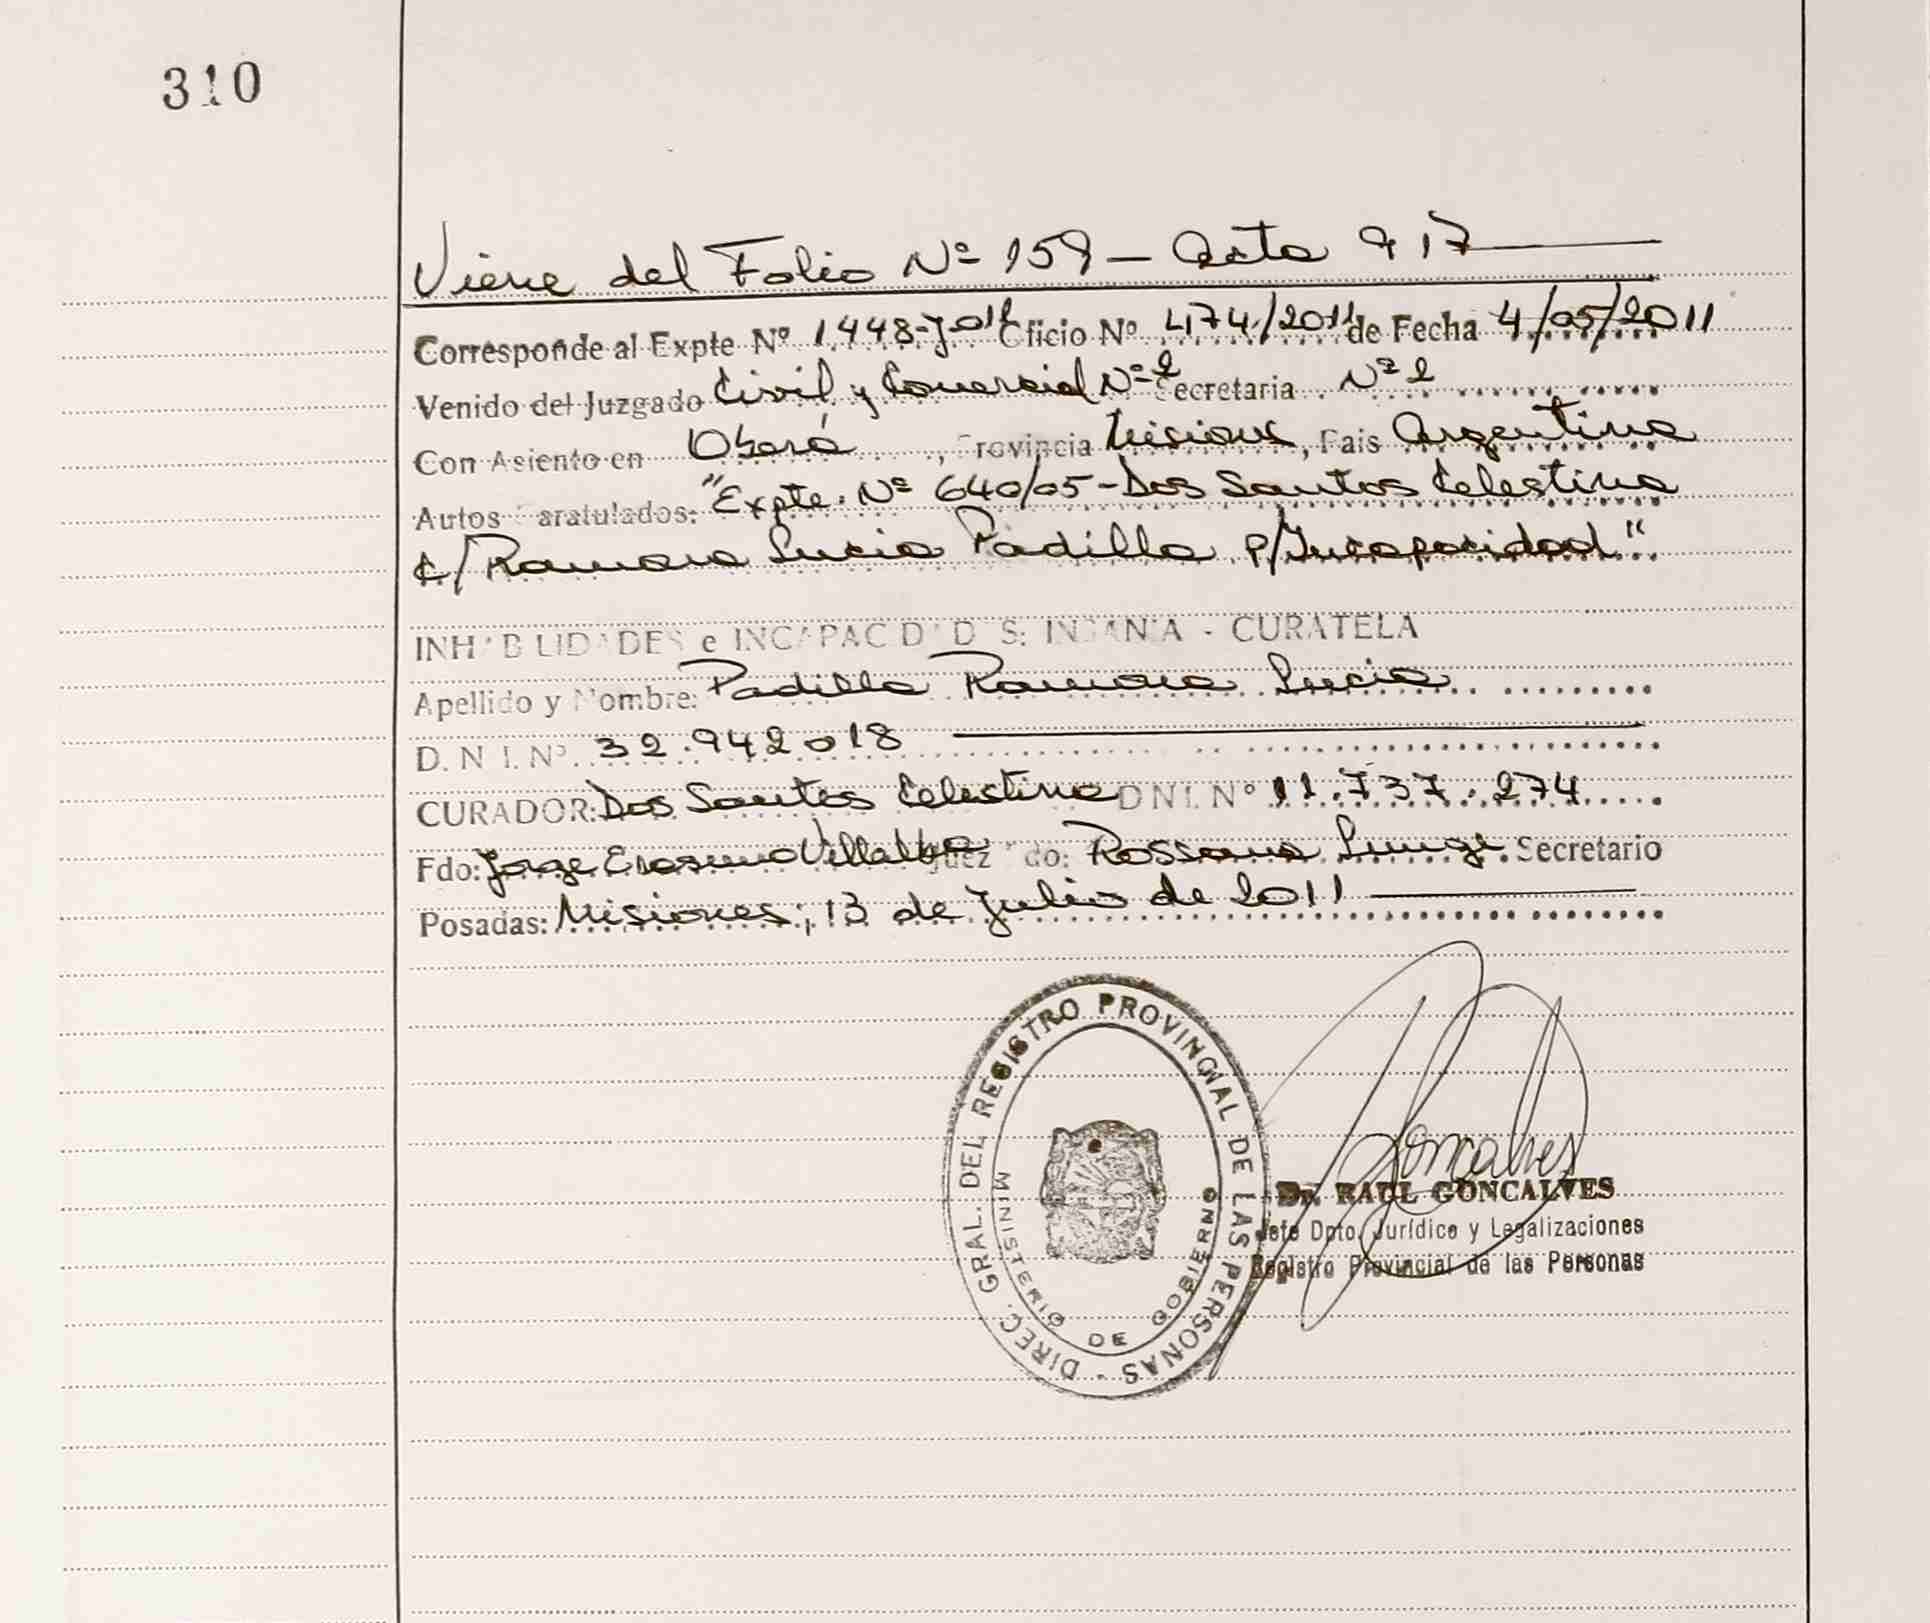 310
Viene del Folio Nº 159 — Acta 917
Corresponde al Expte Nº 1448-J-011 Oficio Nº 474/2011 de Fecha 4/05/2011
Venido del Juzgado Civil y Comercial Nº 2 Secretaria Nº 2
Con Asiento en Oberá, Provincia Misiones, Pais Argentina
Autos Caratulados: "Expte. Nº 640/05 - Dos Santos Celestino
c/ Ramona Lucia Padilla p/Incapacidad".
INHABILIDADES e INCAPACIDADES: INSANIA - CURATELA
Apellido y Nombre: Padilla Ramona Lucia
D.N.I. Nº 32.942018
CURADOR: Dos Santos Celestino DNI. Nº 11.737.274
Fdo: Jorge Erasmo Villalba Juez Fdo: Rossana Secretario
Posadas: Misiones; 13 de Julio de 2011
DIREC. GRAL. DEL REGISTRO PROVINCIAL DE LAS PERSONAS -
MINISTERIO DE GOBIERNO
Goncalves
Dr. RAUL GONCALVES
Jefe Dpto. Jurídico y Legalizaciones
Registro Provincial de las Personas